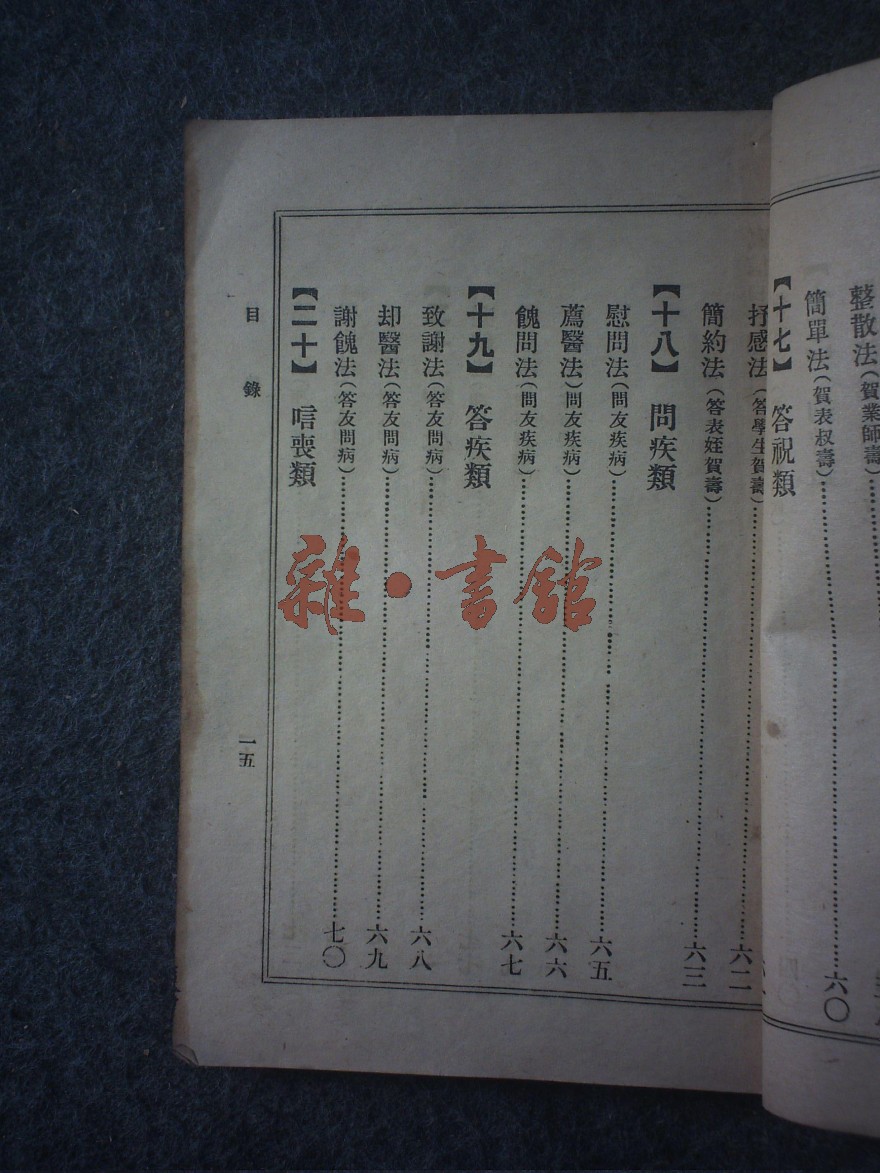 整散法(賀業師壽)
簡單法(賀表叔壽)……六〇
【十七】 答祝類
抒感法(答學生賀壽)……六二
簡約法(答表姪賀壽)……六三
【十八】 問疾類
慰問法(問友疾病)……六五
薦醫法(問友疾病)……六六
餽問法(問友疾病)……六七
【十九】 答疾類
致謝法(答友問病)……六八
却醫法(答友問病)……六九
謝餽法(答友問病)……七〇
【二十】 唁喪類
目錄
一五
雜·書館